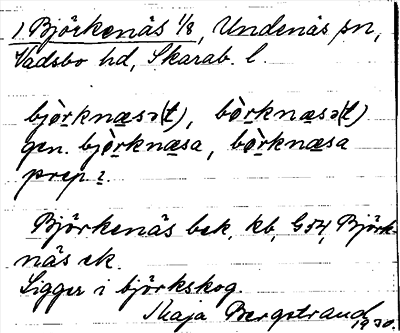 1 Björkenäs 1/8, Undenäs sn,
Vadsbo hd, Skarab. l.
bjò̱rknæ̱sə(t), bò̱rknæ̱sə(t)
gen. bjò̱rknæ̱sa, bò̱rknæ̱sa
prep i.
Björkenäs bek, kb, G54, Björk-
näs ek.
Ligger i björkskog.
Maja Bergstrand 1930.